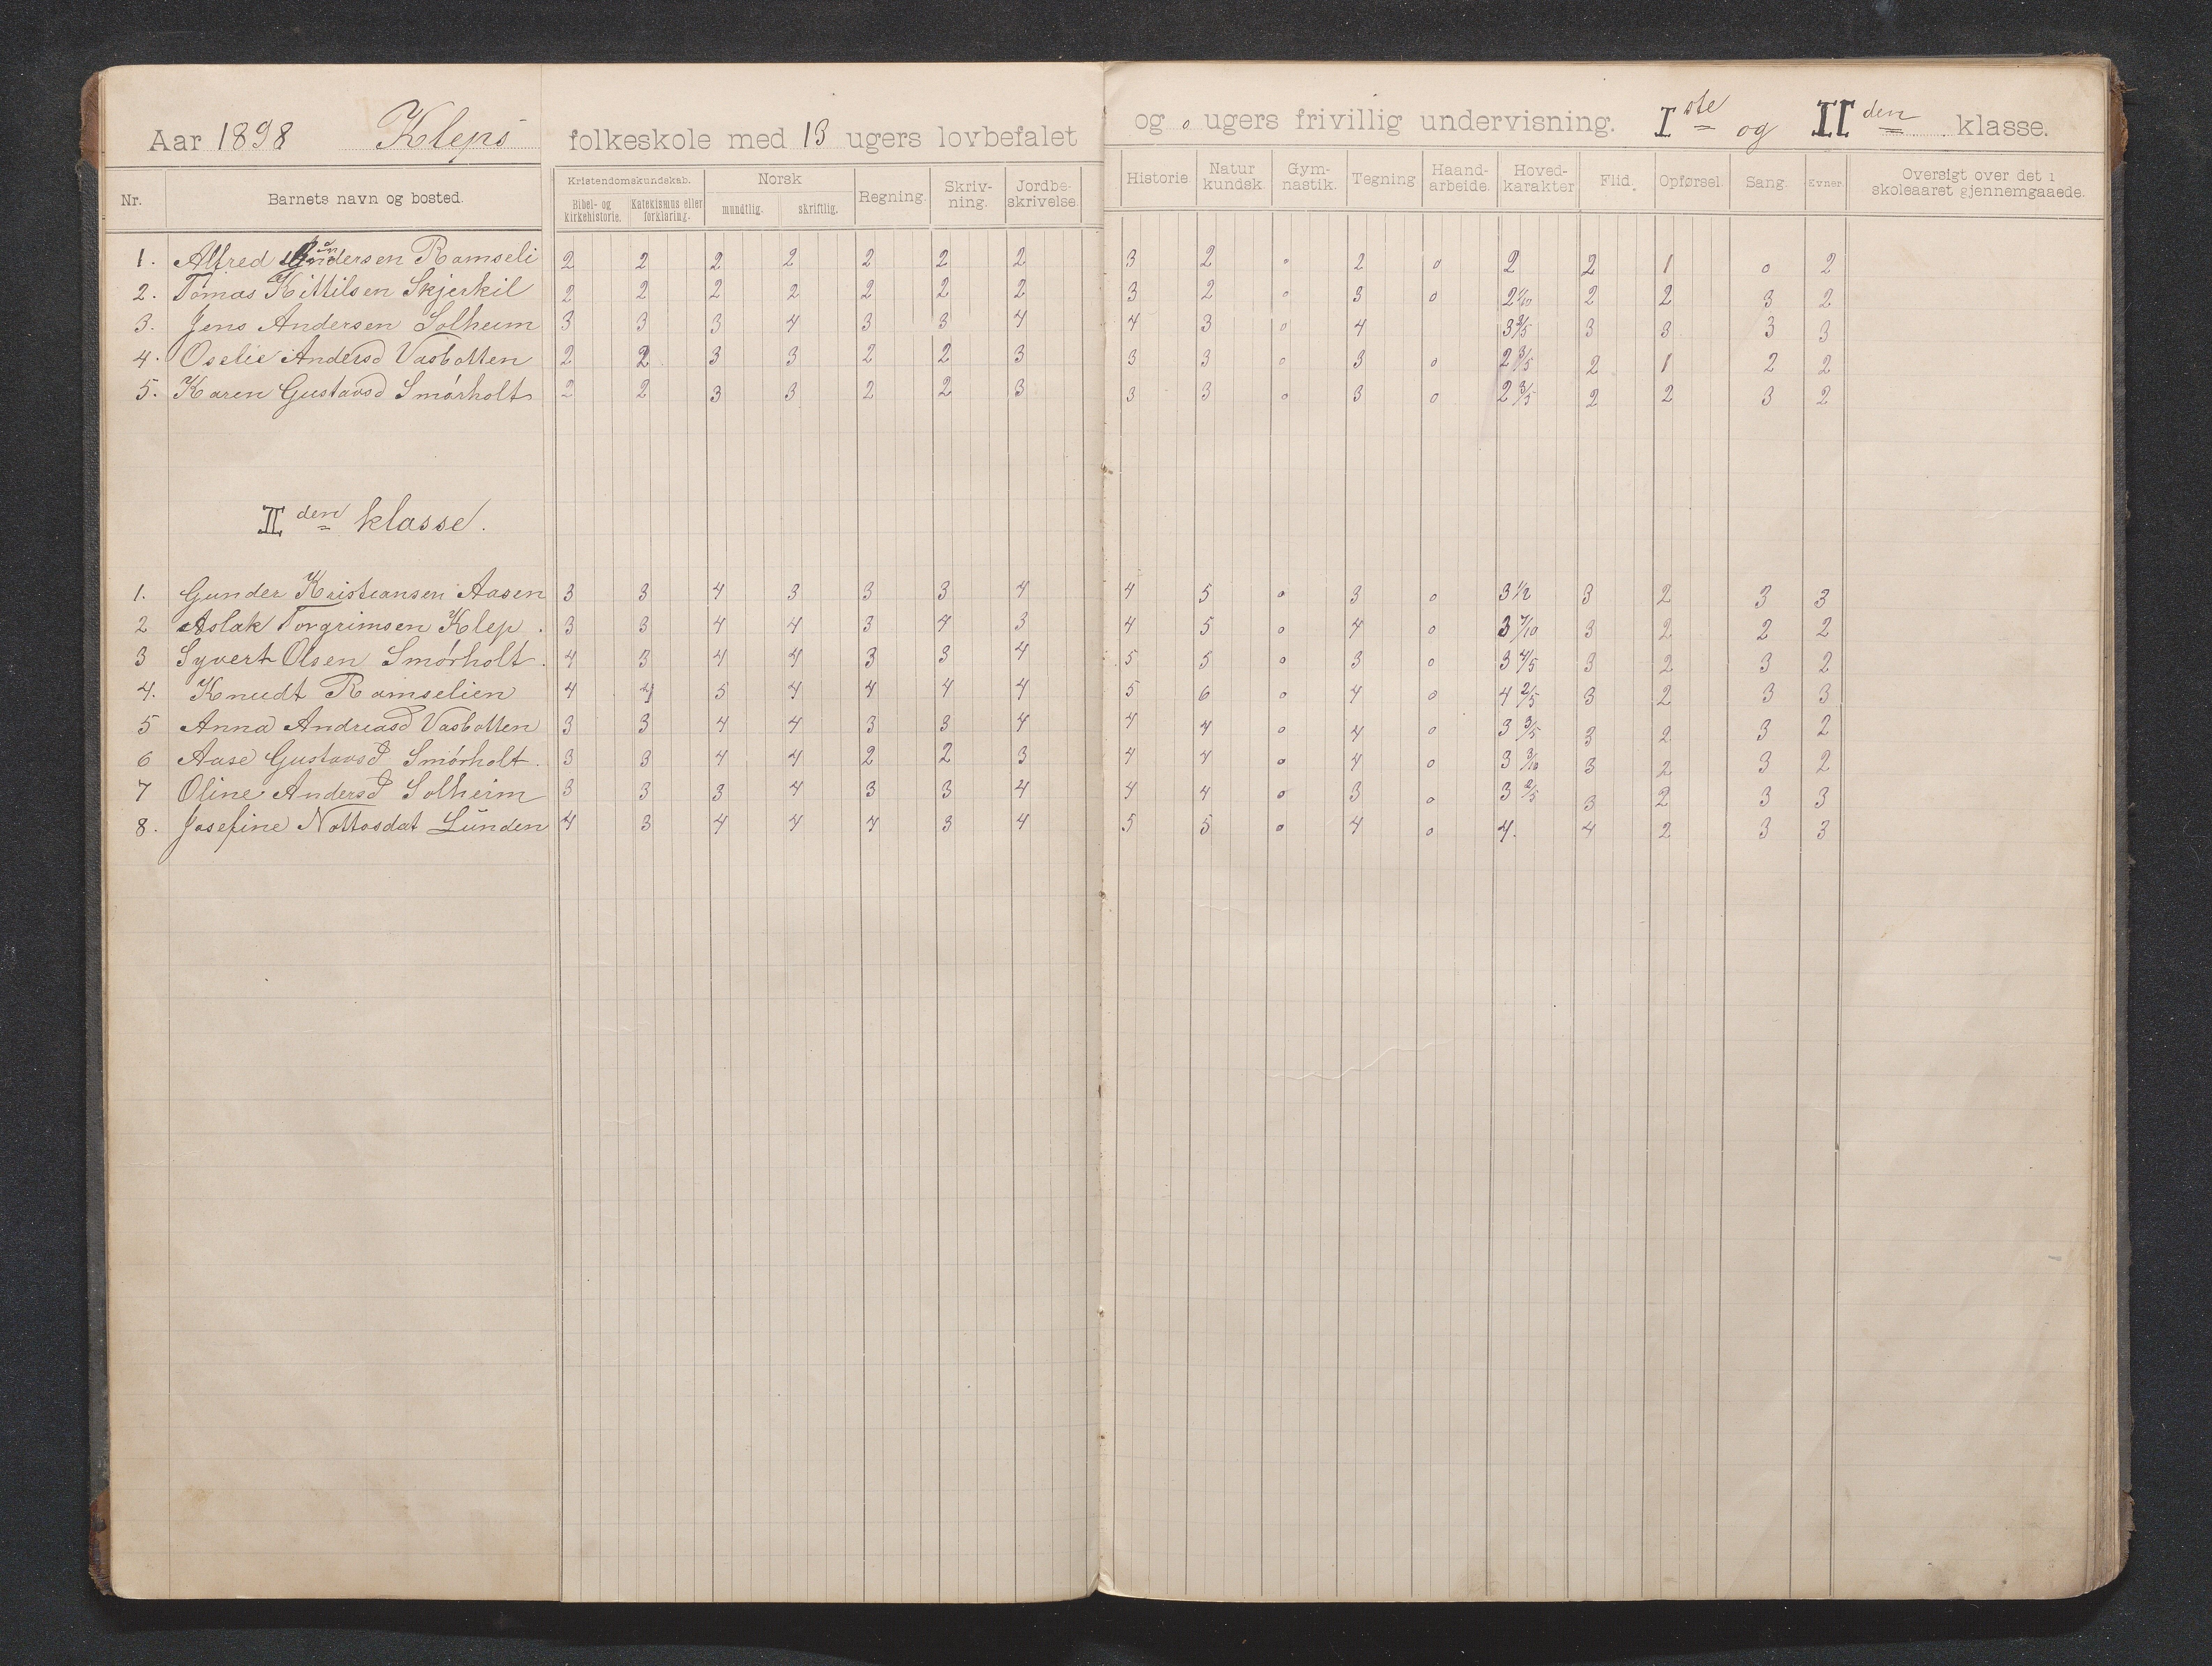 Aar 1898 Kleps folkeskole med 13 ugers lovbefalet og 0 ugers frivillig undervisning. I ste og II den klasse.
Nr. Barnets navn og bosted. Kristendomskundskab. Bibel- og kirkehistorie. Katekismus eller forklaring. Norsk mundtlig. skriftlig. Regning. Skriv-ning. Jordbe-skrivelse. Historie Natur kundsk. Gym-nastik. Tegning Haand-arbeide. Hoved-karakter Flid. Opførsel. Sang. Evner. Oversigt over det i skoleaaret gjennemgaaede.
1. Alfred Ramseli 2 2 2 2 2 2 2 3 2 0 2 0 2 2 1 0 2
2. Tomas Kittilsen Skjerkil 2 2 2 2 2 2 2 3 2 0 3 0 2 1/10 2 2 3 2
3. Jens Andersen Solheim 3 3 3 4 3 3 4 4 3 0 4 3 2/5 3 3 3 3
4. Oselie Andersd Vasbotten 2 2 3 3 2 2 3 3 3 0 3 0 2 3/5 2 1 2 2
5. Karen Gustavsd Smørholt 2 2 3 3 2 2 3 3 3 0 3 0 2 3/5 2 2 3 2
II den klasse.
1. Gunder Kristiansen Aasen 3 3 4 3 3 3 4 4 5 0 3 0 3 1/2 3 2 3 3
2 Aslak Torgrimsen Klep. 3 3 4 4 3 4 3 4 5 0 4 0 3 7/10 3 2 2 2
3 Syvert Olsen Smørholt. 4 3 4 4 3 3 4 5 5 0 3 0 3 4/5 3 2 3 2
4. Knudt Ramselien 4 4 5 4 4 4 4 5 6 0 4 0 4 2/5 3 2 3 3
5 Anna Andreasd Vasbotten 3 3 4 4 3 3 4 4 4 0 4 0 3 3/5 3 2 3 2
6 Aase Gustavsd Smørholt. 3 3 4 4 2 2 3 4 4 0 4 0 3 3/10 3 2 3 2
7 Oline Andersd Solheim 3 3 3 4 3 3 4 4 4 0 3 0 3 2/5 3 2 3 3
8. Josefine Nottosdat Lunden 4 3 4 4 4 3 4 5 5 0 4 0 4. 4 2 3 3